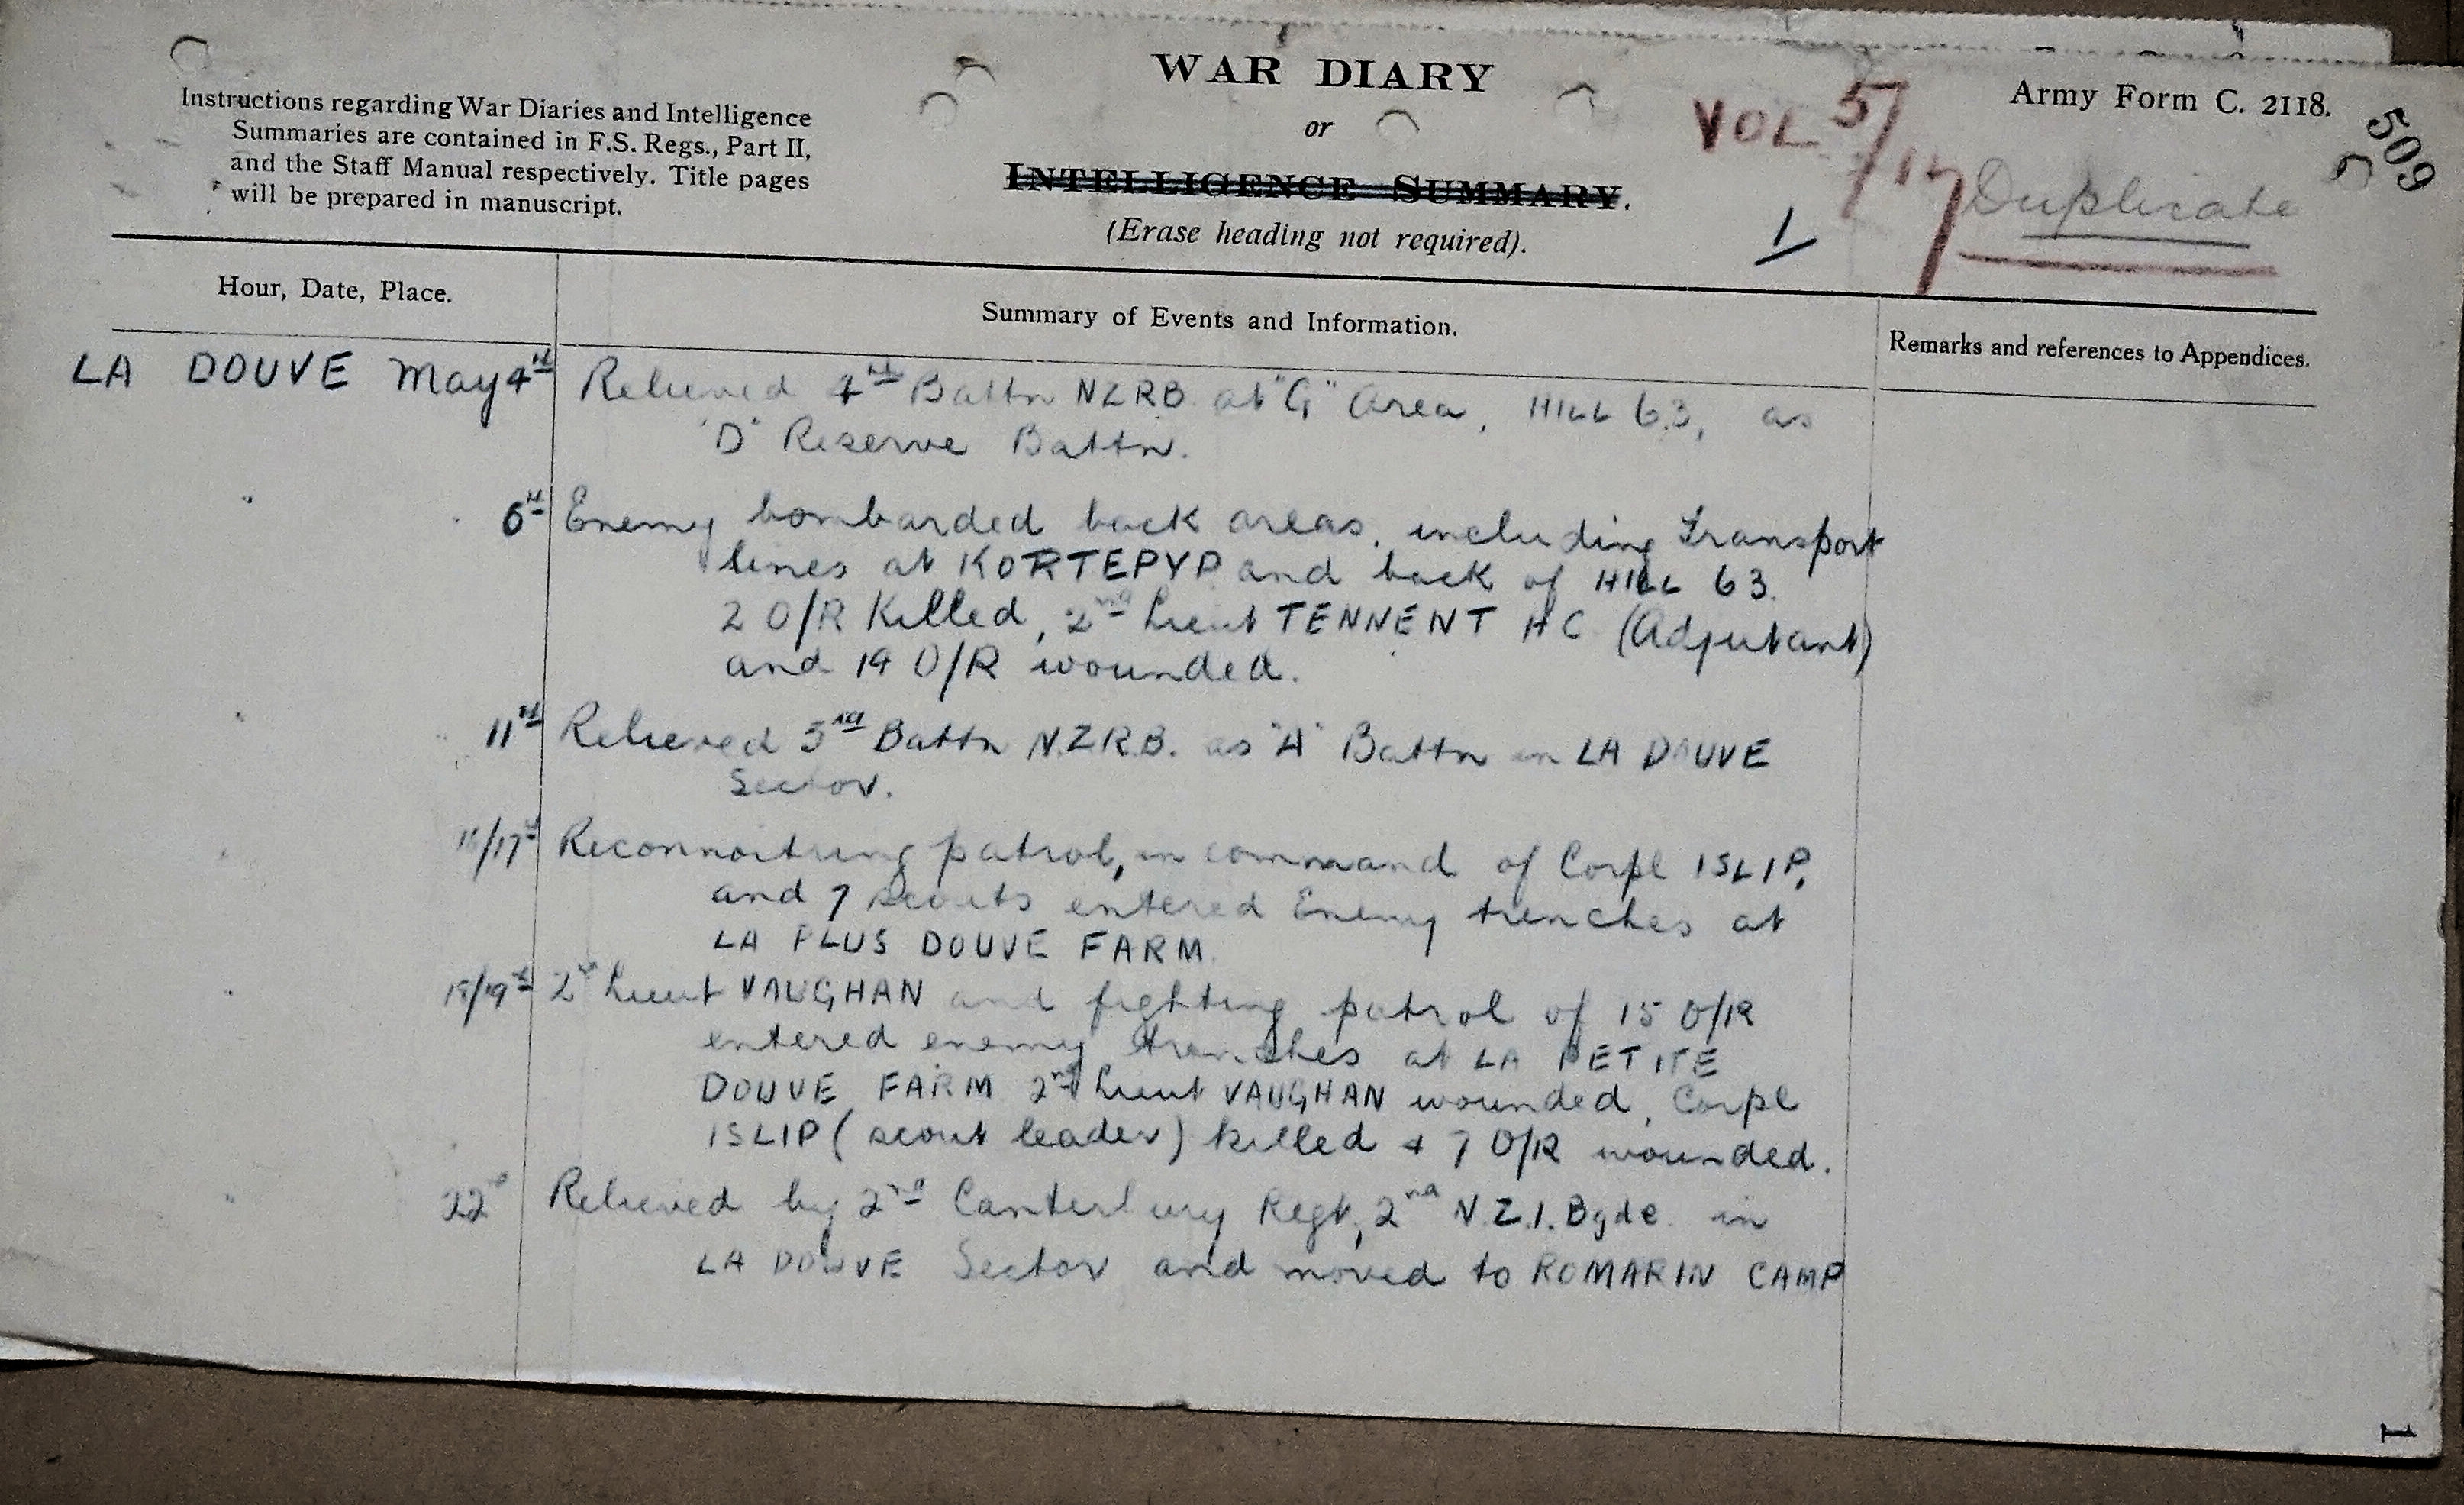 WAR DIARY
or
INTELLIGENCE SUMMARY.
(Erase heading not required).
Instructions regarding War Diaries and Intelligence
Summaries are contained in F.S. Regs., Part II,
and the Staff Manual respectively. Title pages
will be prepared in manuscript.
Army Form C. 2118.
509
VOL 5/17
Duplicate
1
Hour, Date, Place.
Summary of Events and Information.
Remarks and references to Appendices.
LA DOUVE May 4th Relieved 4th Battn NZRB at "G" Area, HILL 63, as
"D" Reserve Battn.
" 6th Enemy bombarded back areas, including Transport
lines at KORTEPYP and back of HILL 63.
2 O/R Killed, 2nd Lieut TENNENT HC (Adjutant)
and 19 O/R wounded.
" 11th Relieved 3rd Battn N.Z.R.B. as "A" Battn in LA DOUVE
Sector.
" 16/17th Reconnoitring patrol, in command of Corpl ISLIP,
and 7 scouts entered Enemy trenches at
LA PLUS DOUVE FARM.
" 18/19th 2nd Lieut VAUGHAN and fighting patrol of 15 O/R
entered enemy trenches at LA PETITE
DOUVE FARM 2nd Lieut VAUGHAN wounded, Corpl
ISLIP (scout leader) killed + 7 O/R wounded.
" 22nd Relieved by 2nd Canterbury Regt, 2nd N.Z.I. Bgde in
LA DOUVE Sector and moved to ROMARIN CAMP
1